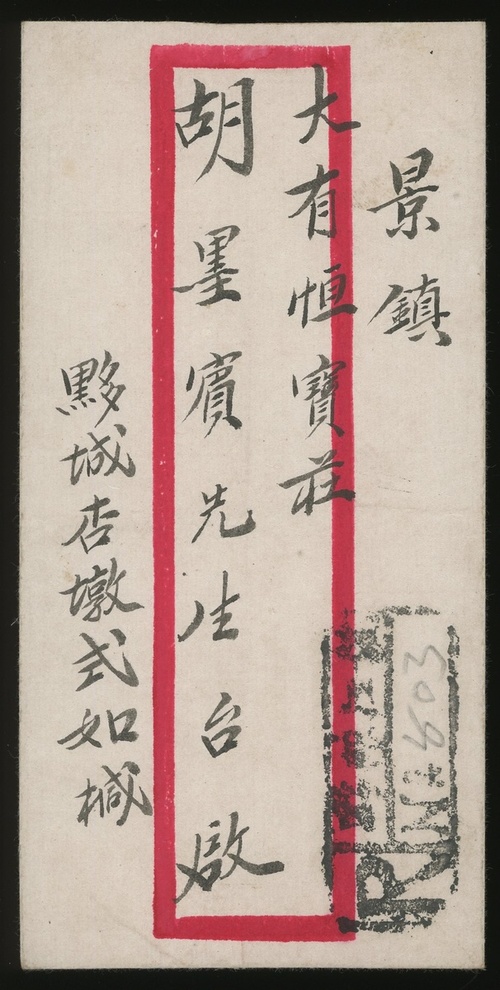 景鎮
大有恒寶莊
胡墨賓先生台啟
黟城杏墩式如椷
R
№ 603